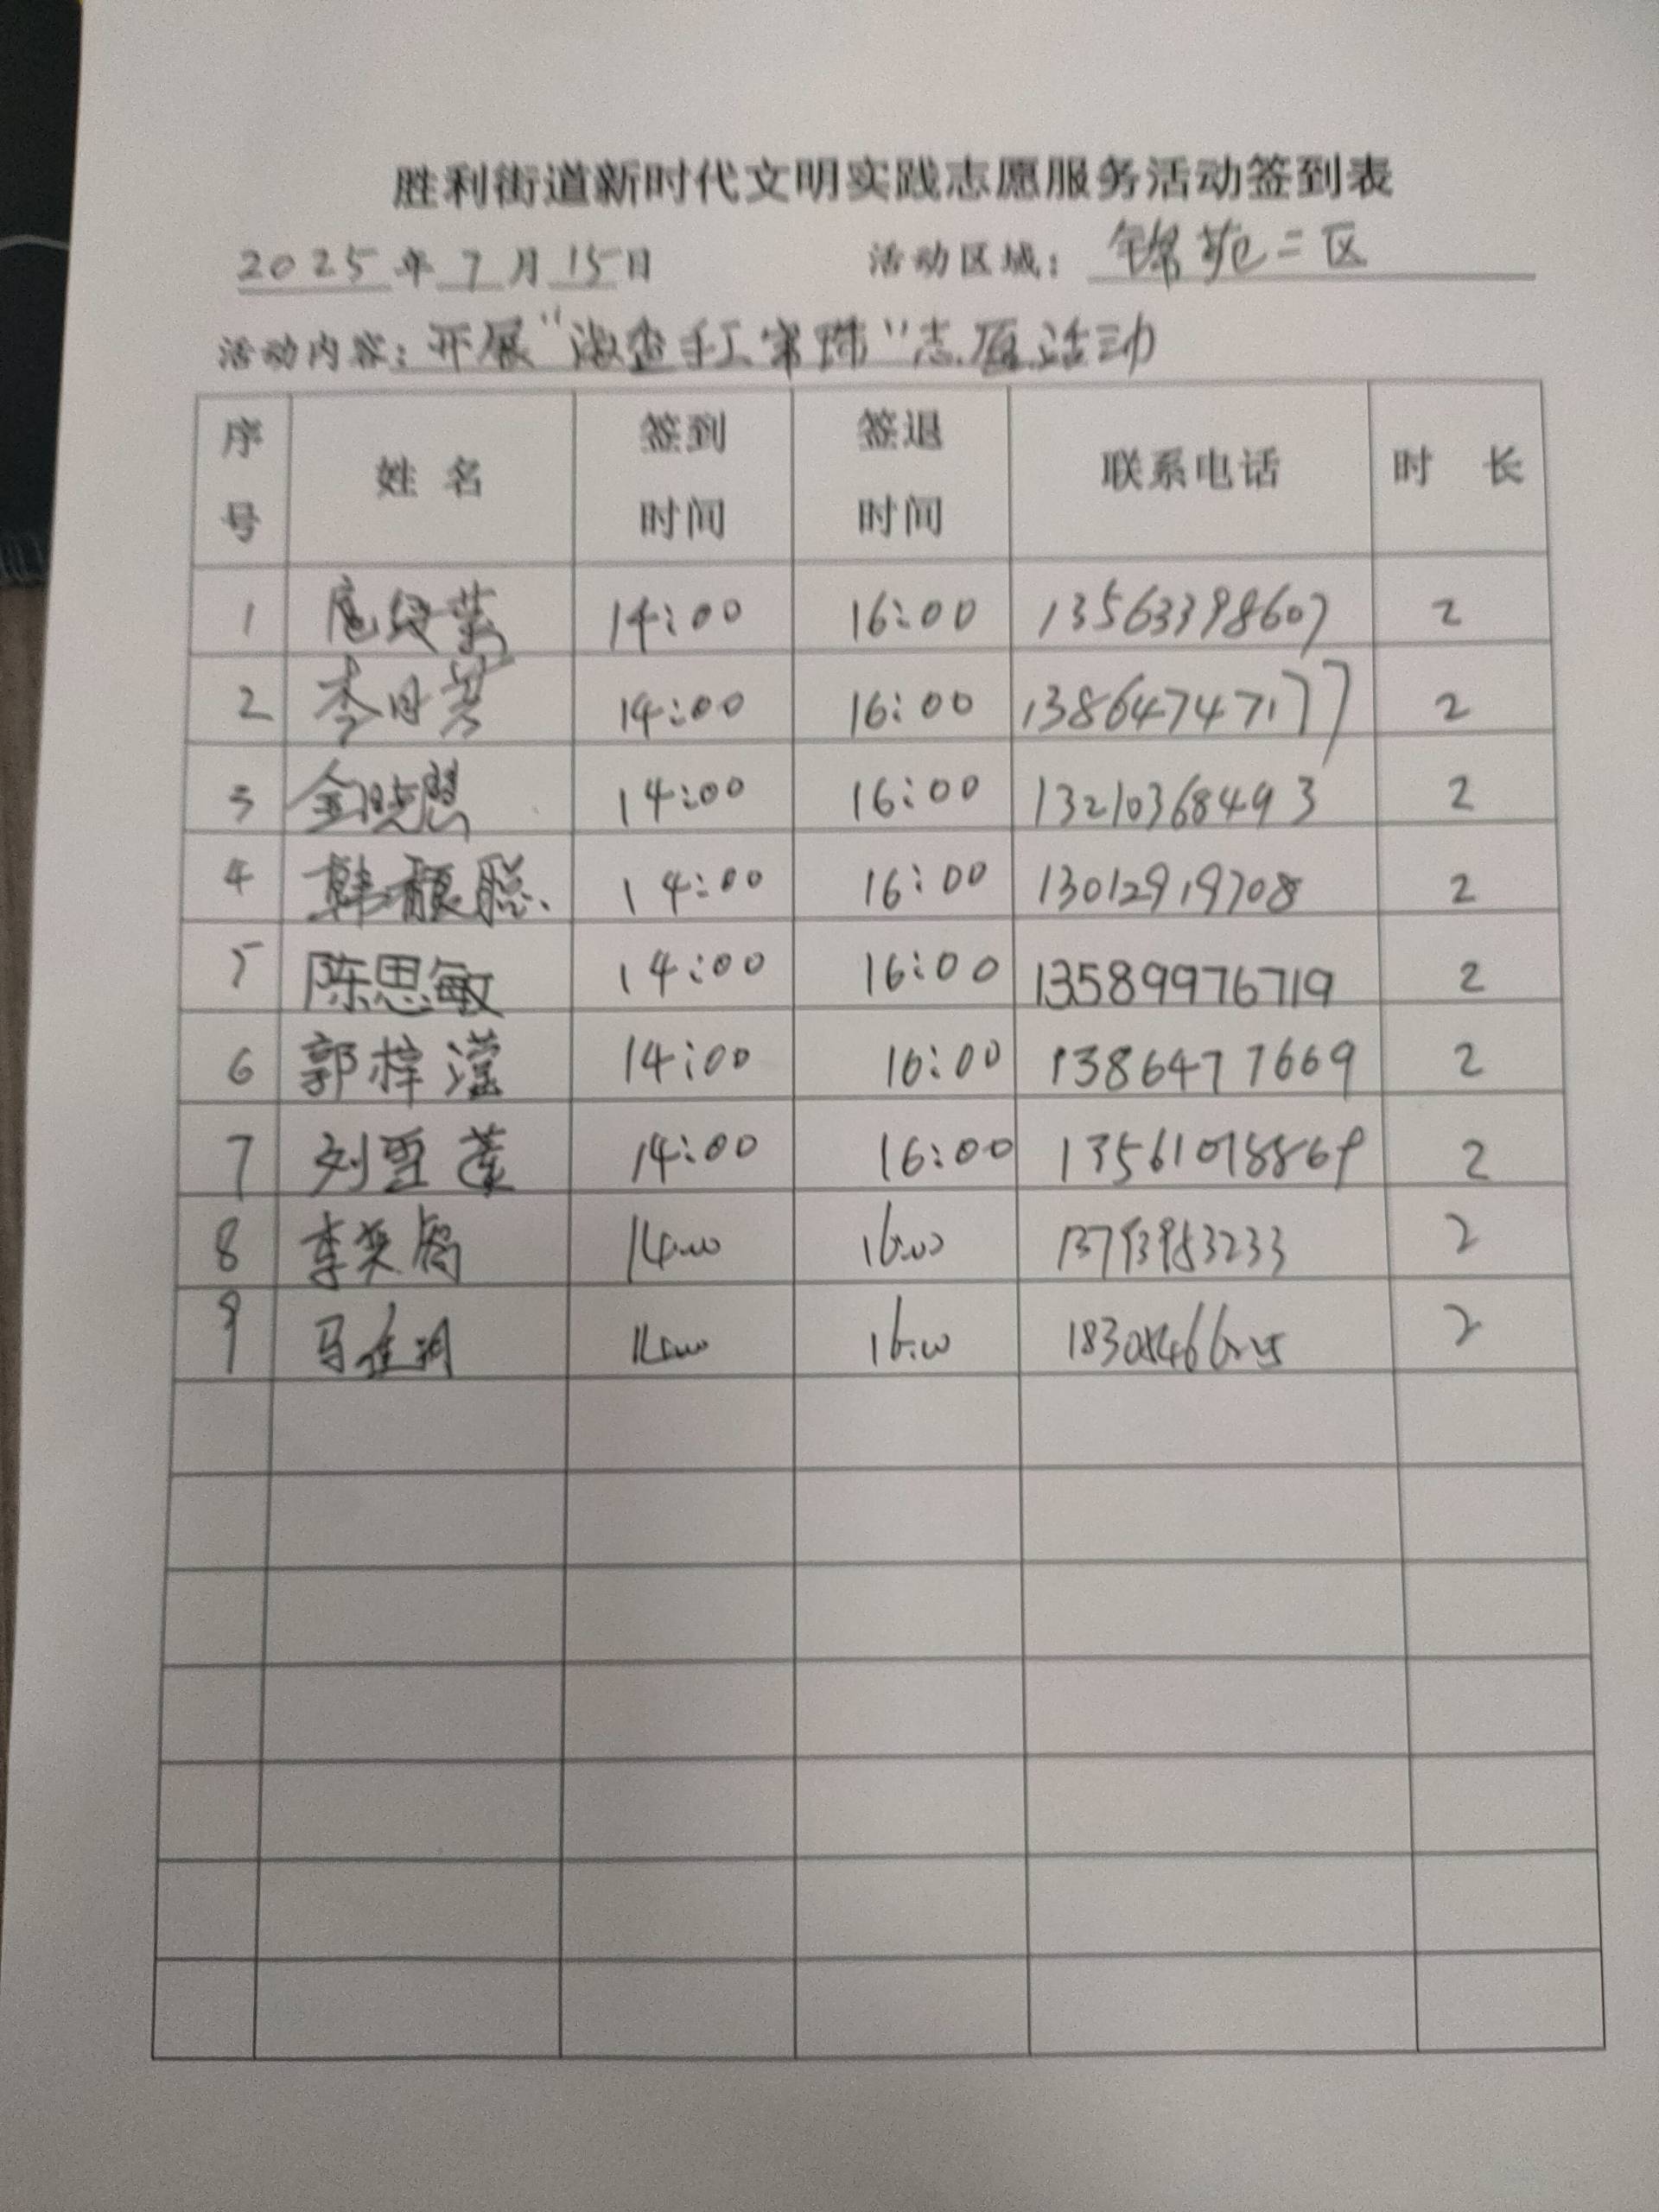 胜利街道新时代文明实践志愿服务活动签到表
2025年7月15日 活动区域:锦苑二区
活动内容:开展“手工”志愿活动
序号 姓名 签到时间 签退时间 联系电话 时 长
1 14:00 16:00 13563398607 2
2 李日芳 14:00 16:00 13864747177 2
3 金晓慧 14:00 16:00 13210368493 2
4 韩馥聪 14:00 16:00 13012919708 2
5 陈思敏 14:00 16:00 13589976719 2
6 郭梓滢 14:00 16:00 1386477669 2
7 刘 14:00 16:00 13561018869 2
8 李奕 14:00 16:00 13793983233 2
9 马佳润 14:00 16:00 2